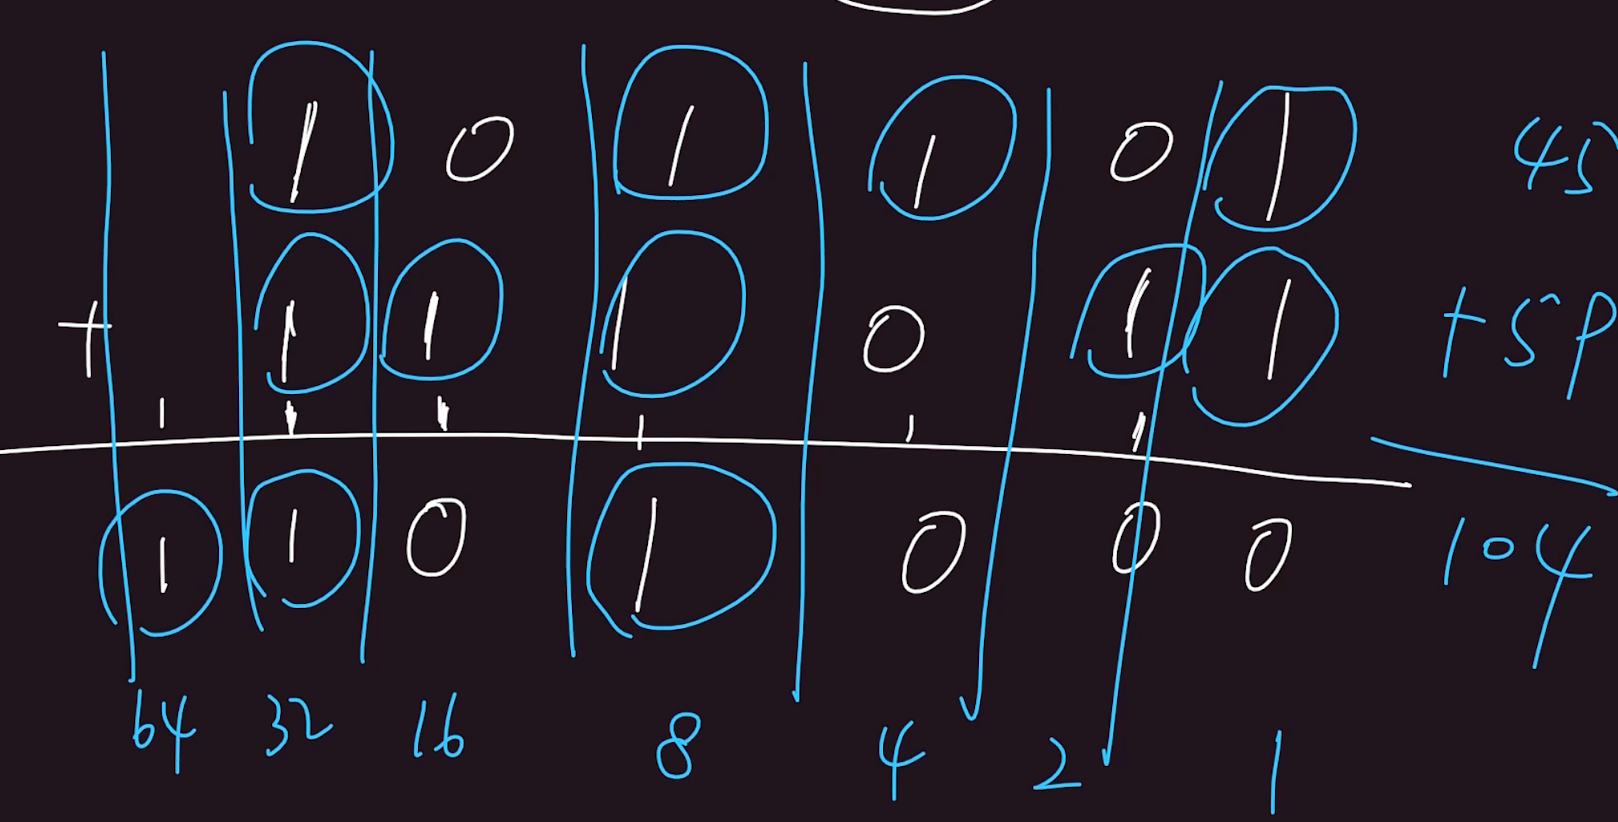 1 0 1 1 0 1 45
+ 1 1 1 0 1 1 +59
1 1 1 1 1 1
1 1 0 1 0 0 0 104
64 32 16 8 4 2 1